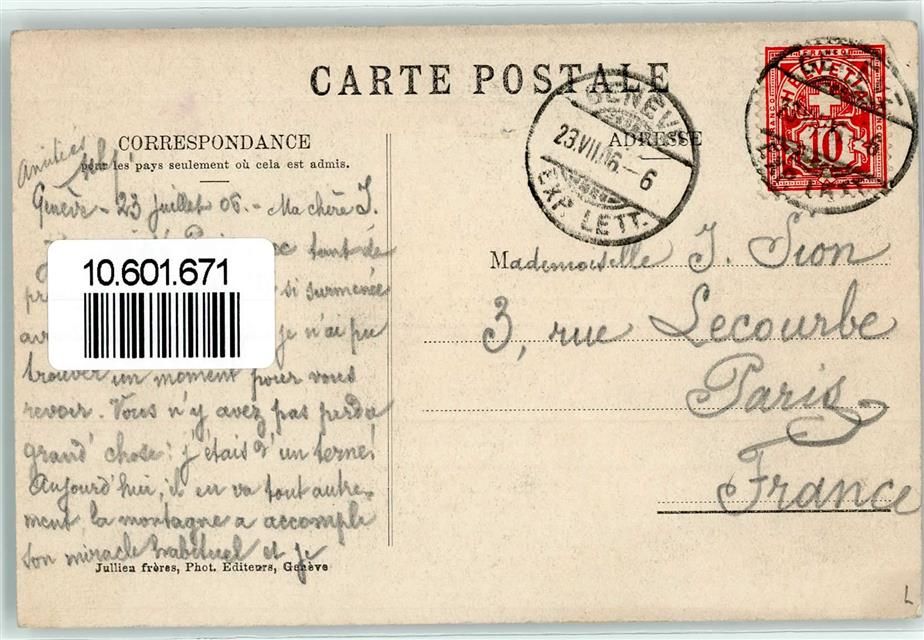 CARTE POSTALE
CORRESPONDANCE
pour les pays seulement où cela est admis.
ADRESSE
GENÈVE
23.VII.06.-6
EXP. LETT.
FRANCO
HELVETIA
10
Amitiés
Genève - 23 juillet 06. - Ma chère J.
tant de
si surmenée
je n'ai pu
trouver un moment pour vous
revoir. Vous n'y avez pas perdu
grand' chose: j'étais d'un terne!
Aujourd'hui, il en va tout autre-
ment la montagne a accompli
son miracle habituel et je
10.601.671
Mademoiselle J. Sion
3, rue Lecourbe
Paris
France
Jullien frères, Phot. Editeurs, Genève
L